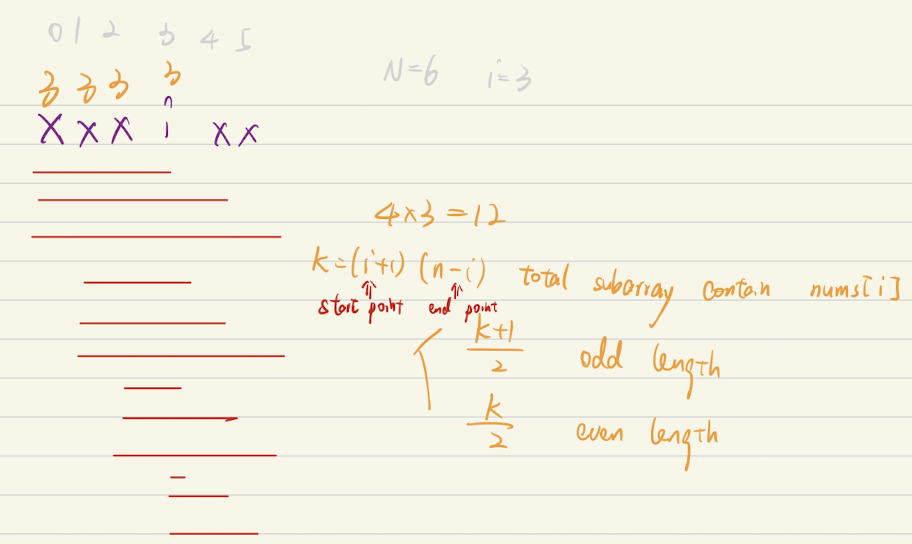 0 1 2 3 4 5
N=6 i=3
3 3 3 3
X X X i X X
4×3=12
k=(i+1)(n-i) total subarray contain nums[i]
start point end point
k+1
2
odd length
k
2
even length